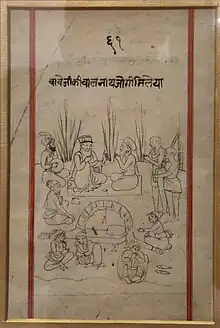 ६१
बाबेजीकीबालनाथजोगीमिलेया